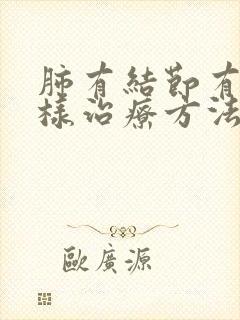 肺有結節有
樣治療方法
歐廣源